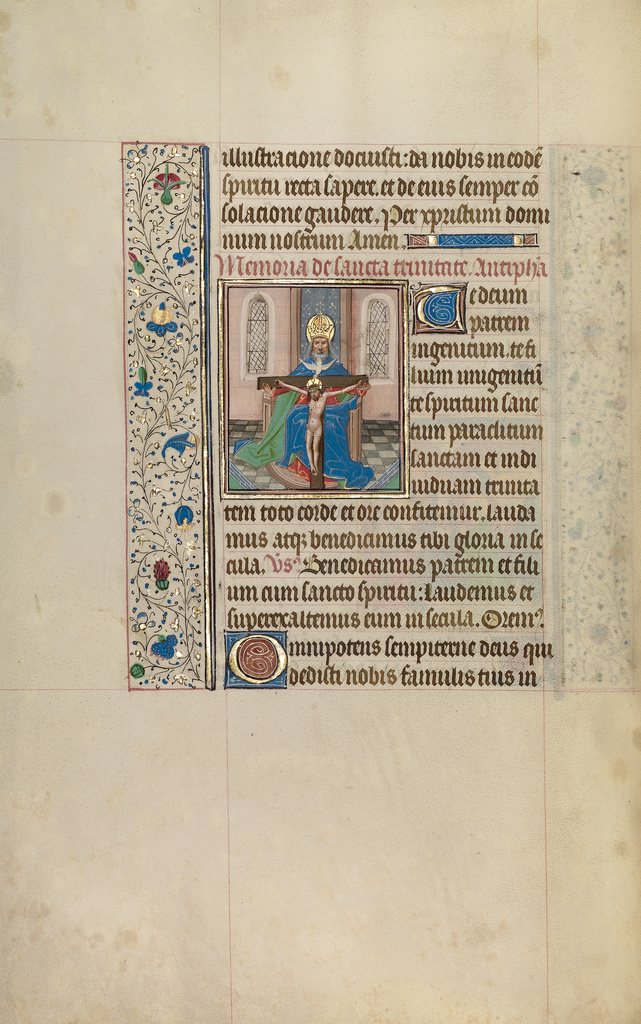 illustracione docuisti: da nobis in eodē
spiritu recta sapere. et de eius semper cō
solacione gaudere. Per xpristum domi
num nostrum Amen.
Memoria de sancta trinitate. Antipha
Te deum
patrem
ingenitum. te fi
lium unigenitū
te spiritum sanc
tum paraclitum
sanctam et indi
uiduam trinita
tem toto corde et ore confitemur. lauda
mus atqꝫ benedicimus tibi gloria in se
cula. Vs᷒ Benedicamus patrem et fili
um cum sancto spiritu: laudemus et
superexaltemus eum in secula. Orem᷒.
Omnipotens sempiterne deus qui
dedisti nobis famulis tuis in